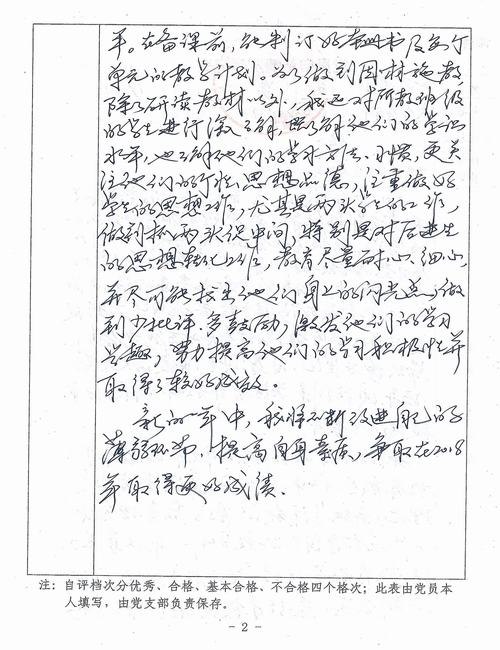 年。在备课前，能制订好本册书及每个
单元的教学计划。为了做到因材施教
除了研读教材以外，我还对所教班级
的学生进行深入了解，既了解他们的学识
水平，也了解他们的学习方法、习惯，更关
注他们的个性、思想品德，注重做好
学生的思想工作，尤其是两头学生的工作，
做到抓两头促中间，特别是对后进生
的思想转化工作，教育尽量耐心、细心，
并尽可能找出他们身上的闪光点，做
到少批评、多鼓励，激发他们的学习
兴趣，努力提高他们的学习积极性并
取得了较好成效。
新的一年中，我将不断改进自己的
薄弱环节，提高自身素质，争取在2018
年取得更好成绩。
注：自评档次分优秀、合格、基本合格、不合格四个格次；此表由党员本
人填写，由党支部负责保存。
- 2 -